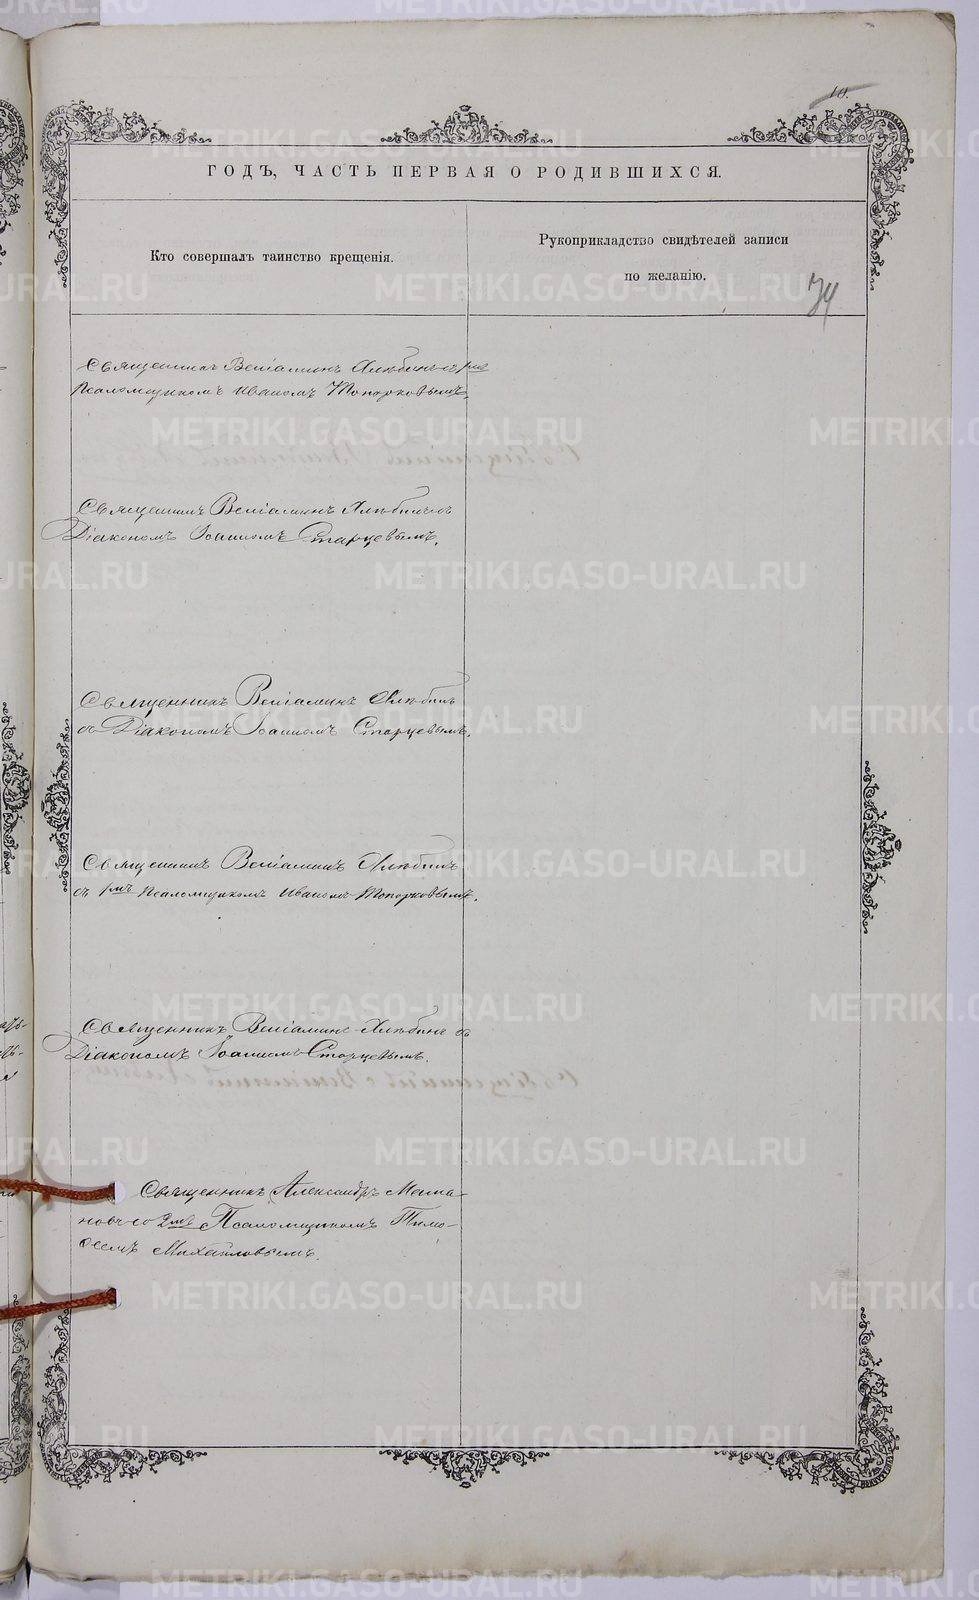 10.
ГОДЪ, ЧАСТЬ ПЕРВАЯ О РОДИВШИХСЯ.
Кто совершалъ таинство крещенія.
Рукоприкладство свидѣтелей записи
по желанію.
74
Священникъ Веніаминъ Хлѣбинъ съ
Псаломщикомъ Иваномъ Топорковымъ.
Священникъ Веніаминъ Хлѣбинъ съ
Діакономъ Іоанномъ Старцевымъ.
Священникъ Веніаминъ Хлѣбинъ
съ Діакономъ Іоанномъ Старцевымъ.
Священникъ Веніаминъ Хлѣбинъ
съ Псаломщикомъ Иваномъ Топорковымъ.
Священникъ Веніаминъ Хлѣбинъ съ
Діакономъ Іоанномъ Старцевымъ.
Священникъ Александръ Мама-
новъ со 2мъ Псаломщикомъ Тимо-
ѳеемъ Михайловымъ.
METRIKI.GASO-URAL.RU